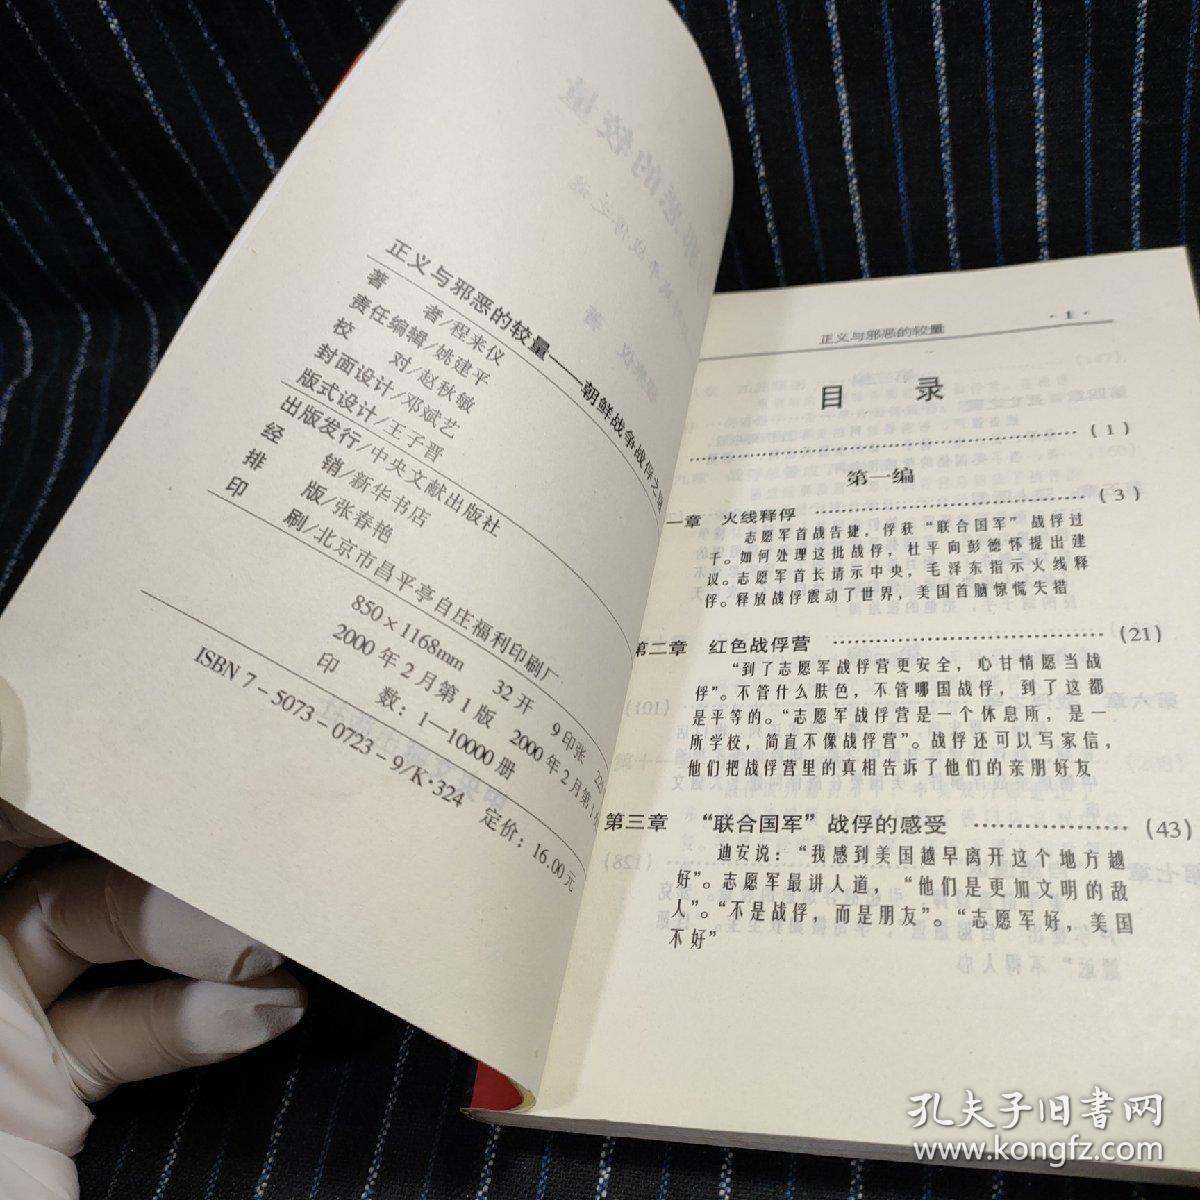 正义与邪恶的较量——朝鲜战争战俘之谜
著 者/程来仪
责任编辑/姚建平
校 对/赵秋敏
封面设计/邓斌艺
版式设计/王子晋
出版发行/中央文献出版社
经 销/新华书店
排 版/张春艳
印 刷/北京市昌平亭自庄福利印刷厂
850×1168mm 32开 9印张
2000年2月第1版 2000年2月第1
印 数：1—10000册
ISBN 7-5073-0723-9/K·324 定价：16.00元
正义与邪恶的较量 ·1·
目 录
(1)
第一编
一章 火线释俘 (3)
志愿军首战告捷，俘获“联合国军”战俘过
千。如何处理这批战俘，杜平向彭德怀提出建
议。志愿军首长请示中央，毛泽东指示火线释
俘。释放战俘震动了世界，美国首脑惊慌失措
第二章 红色战俘营 (21)
“到了志愿军战俘营更安全，心甘情愿当战
俘”。不管什么肤色，不管哪国战俘，到了这都
是平等的。“志愿军战俘营是一个休息所，是一
所学校，简直不像战俘营”。战俘还可以写家信，
他们把战俘营里的真相告诉了他们的亲朋好友
第三章 “联合国军”战俘的感受 (43)
迪安说：“我感到美国越早离开这个地方越
好”。志愿军最讲人道，“他们是更加文明的敌
人”。“不是战俘，而是朋友”。“志愿军好，美国
不好”
孔夫子旧书网
www.kongfz.com